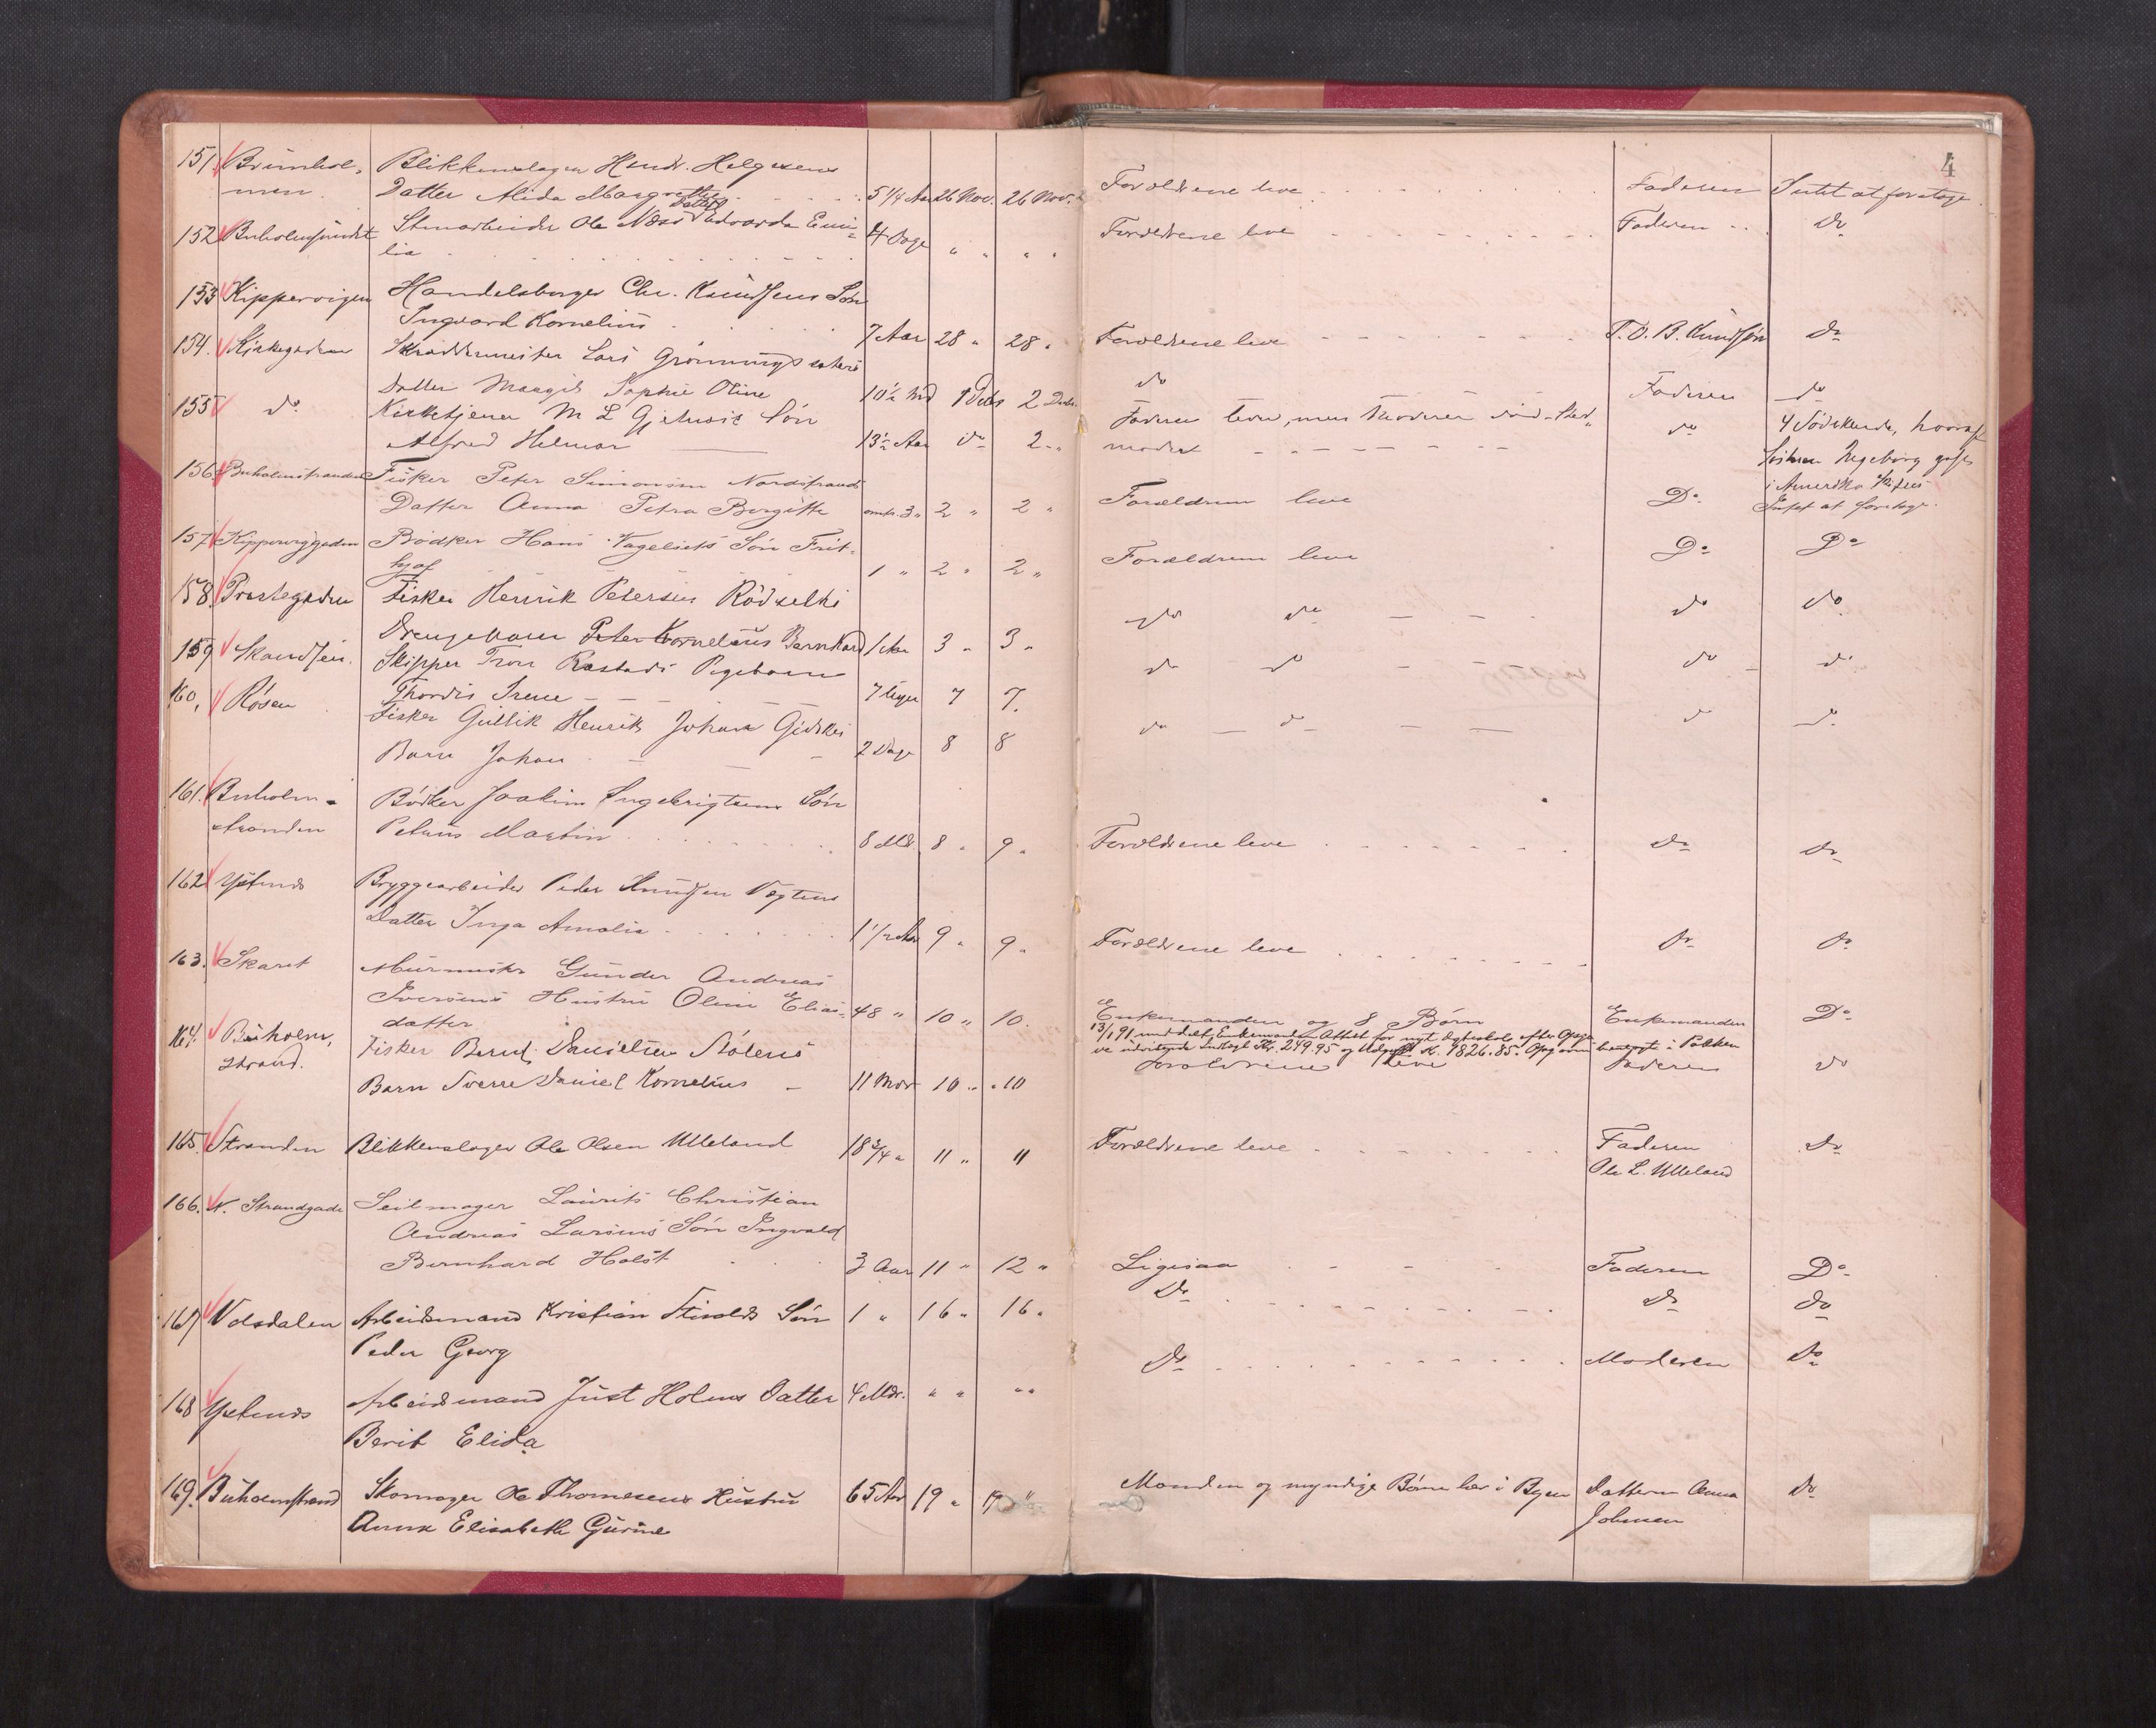 4
151. Brunhol-
men.
Blikkenslager Hendr. Helgesens
Datter Alida Margrethe 5 1/4 Aar 26 Nov. 26 Nov.
Forældrene leve Faderen Intet at foretage.
152 Buholmsundet
Stuarbeider Ole Næss Datter Edvarda Emi-
lia 4 Dage " " " "
Forældrene leve Faderen Do
153 Kippervigen Handelsborger Chr. Knudsens Søn
Ingvard Kornelius 7 Aar 28 " 28 "
Forældrene leve T. O. B. Knudsøn Do
154. Kirkegaden Skræddermester Lars Grønningsæters
Datter Margit Sophie Oline 10½ Md 1 Decbr 2 Decbr.
do Faderen do
155 do Kirketjener M L Gjelsvik Søn
Alfred Helmar 13½ Aar do 2 "
Faderen lever, men Moderen død - Sted-
moder do
4 Sødskende, hvoraf
Søsteren Ingeborg gift
i Amerika
156. Buholmstranden Fisker Peter Simonsen Nordstrands
Datter Anna Petra Bergitte omtr. 3 " 2 " 2 "
Forældrene leve Do Intet at foretage.
157 Kipperviggaden Bødker Hans Vagelsets Søn Frit-
hjof 1 " 2 " 2 "
Forældrene leve Do Do
158. Præstegaden Fisker Henrik Petersen Rødsethi
Drengebarn Peter Kornelius Bernhard 1 Aar 3 " 3 "
do do do do
159 Skandsen. Skipper Tron Rastads Pigebarn
Thordis Irene 7 Uger 7 7.
do do do do
160, Røsen Fisker Gullik Henrik Johan Gidskes
Barn Johan 2 Dage 8 8
do do do do
161. Buholm-
stranden
Bødker Joakim Ingebrigtsens Søn
Petrus Martin 8 Md. 8 " 9 "
Forældrene leve Do Do
162 Ystenes Bryggearbeider Peder Knudsen Vegtens
Datter Inga Amalie 1 1/2 Aar 9 " 9 "
Forældrene leve Do Do
163. Skaret Murmester Gunder Andreas
Iversens Hustru Oline Elias-
datter 48 " 10 " 10.
Enkemanden og 8 Børn Enkemanden Do
13/1 91 meddelt Enkemanden Attest for nyt Ægteskab efter Opgave
udvisende Indtægt Kr. 249.95 og Udgift Kr. 1826.85. i Pakken
164. Buholm,
strand.
Fisker Bernt Danielsen Stolens
Barn Sverre Daniel Kornelius 11 Mdr 10 " " 10
Forældrene leve Faderen do
165. Stranden Blikkenslager Ole Olsen Ulleland 18 3/4 " 11 " 11
Forældrene leve Faderen Do
Ole L. Ulleland
166. N. Strandgade Seilmager Laurits Christian
Andreas Larsens Søn Ingvald
Bernhard Holst 3 Aar 11 " 12 "
Ligesaa Faderen Do
167 Volsdalen Arbeidsmand Kristian Flisvolds Søn 1 " 16 " 16 "
Peder Georg
Do Do do
168 Ystenes Arbeidsmand Just Holms Datter 4 Mdr. " " " "
Berit Elida
Do Moderen Do
169. Buholmstrand Skomager Ole Thomesens Hustru 65 Aar 19 " 19 "
Anna Elisabeth Gurine
Manden og myndige Børn her i Byen Datteren Anna Do
Johnsen